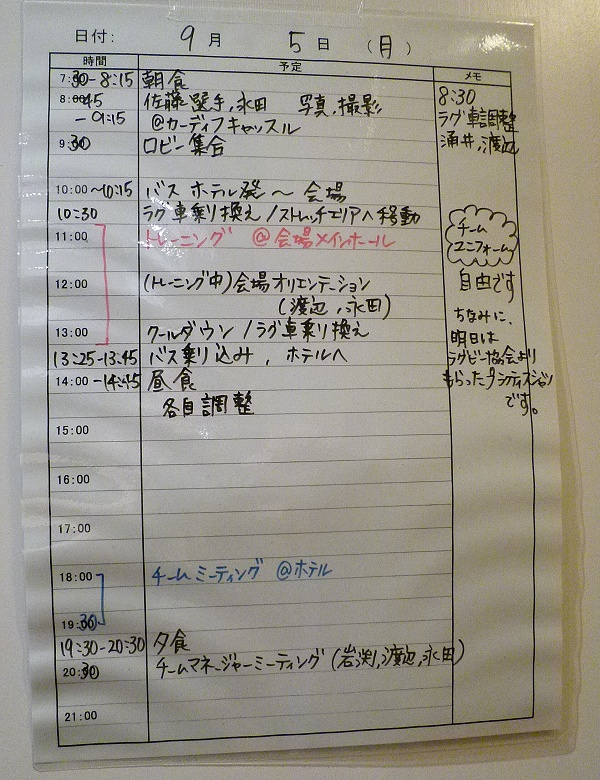 日付: 9月 5日 (月)
時間 予定 メモ
7:30-8:15 朝食
8:45 佐藤選手,永田 写真,撮影 8:30
-9:15 @カーディフキャッスル ラグ車調整
9:30 ロビー集合 涌井,渡辺
10:00~10:15 バス ホテル発~会場
10:30 ラグ車乗り換え/ストレッチエリアへ移動
11:00 トレーニング @会場メインホール
チーム
ユニフォーム
自由です
12:00 (トレーニング中)会場オリエンテーション
(渡辺,永田)
ちなみに、
13:00 クールダウン/ラグ車乗り換え 明日は
13:25-13:45 バス乗り込み, ホテルへ ラグビー協会より
14:00-14:45 昼食 もらったプラクティスシャツ
各自調整 です。
15:00
16:00
17:00
18:00 チームミーティング @ホテル
19:30
19:30-20:30 夕食
20:30 チームマネージャーミーティング(岩渕,渡辺,永田)
21:00